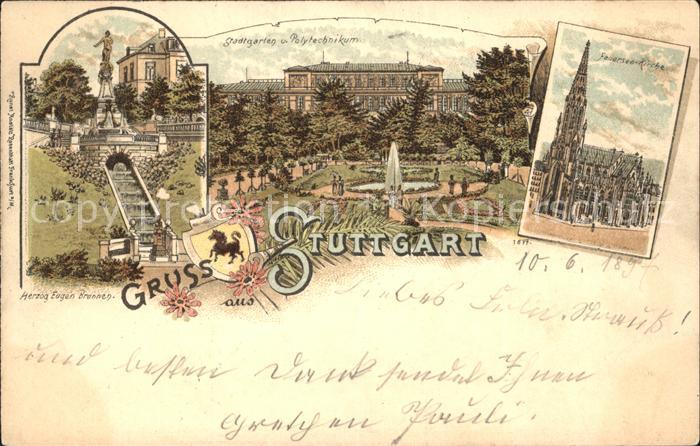 Stadtgarten u. Polytechnikum.
Feuersee-Kirche
Herzog Eugen Brunnen.
GRUSS
aus
STUTTGART
1877.
10. 6. 1897
Liebes Frln. Strauß!
und besten Dank sendet Ihnen
Gretchen Pauli.
copyright